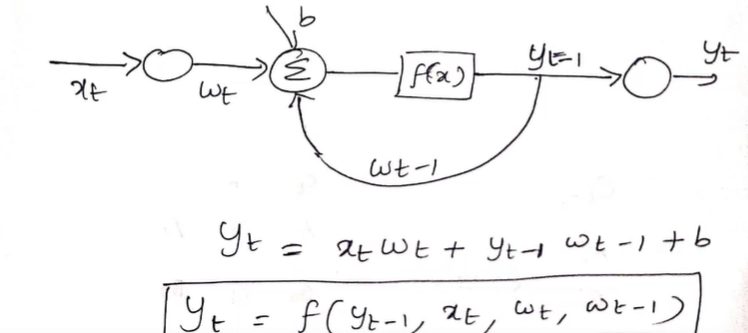 b
x_t
w_t
Σ
f(x)
y_t-1
y_t
w_t-1
y_t = x_t w_t + y_t-1 w_t-1 + b
y_t = f(y_t-1, x_t, w_t, w_t-1)